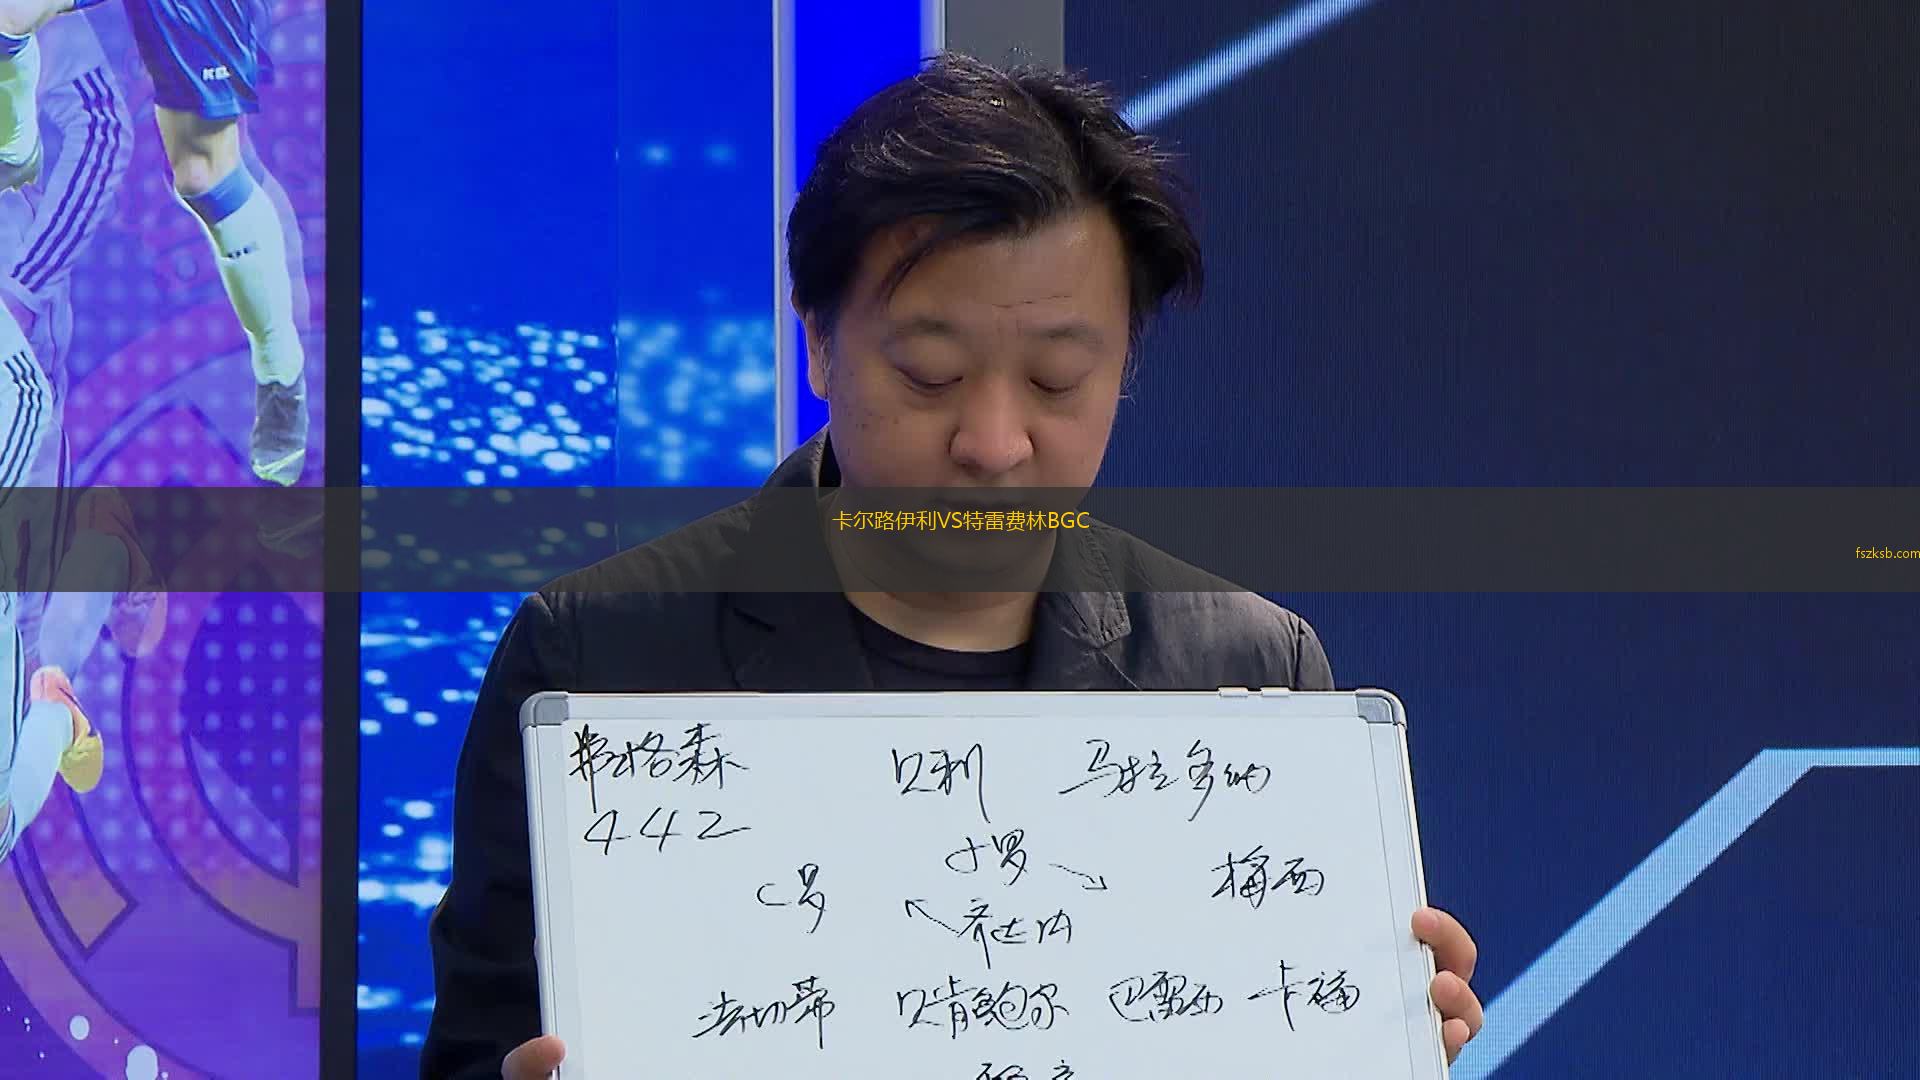 卡尔路伊利VS特雷费林BGC
fszksb.com
弗格森 贝利 马拉多纳
442
小罗
C罗 梅西
齐达内
法切蒂 贝肯鲍尔 巴雷西 卡福